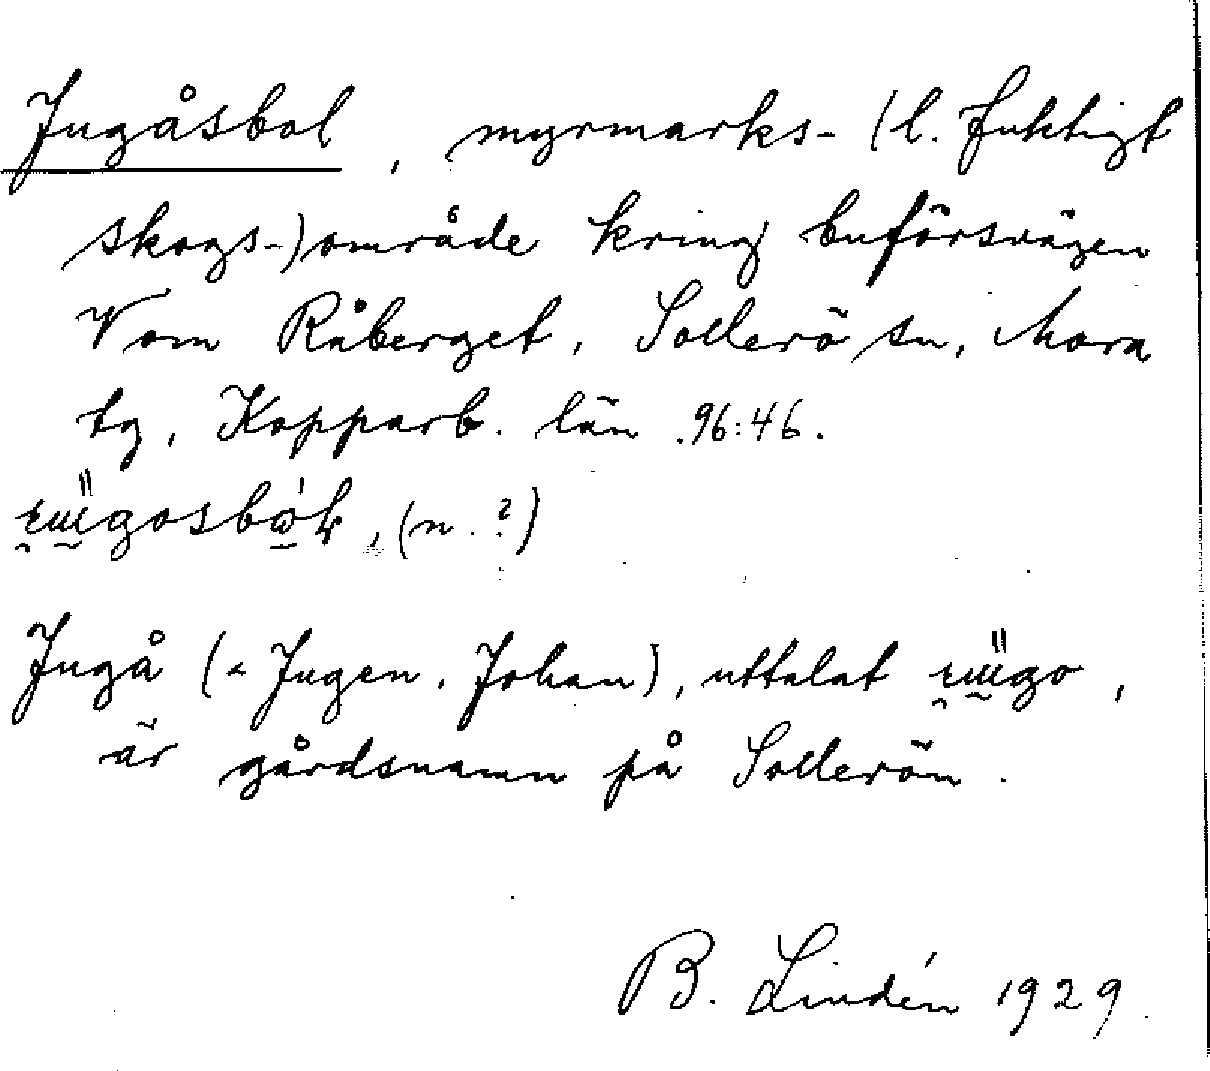 Jugåsbol, myrmarks- (l. fuktigt
skogs-) område kring buförsvägen
V om Råberget, Sollerö sn, Mora
tg, Kopparb. län. 96:46.
(n. ?)
Jugå (< Jugen, Johan), uttalat
är gårdsnamn på Sollerön.
B. Lindén 1929.